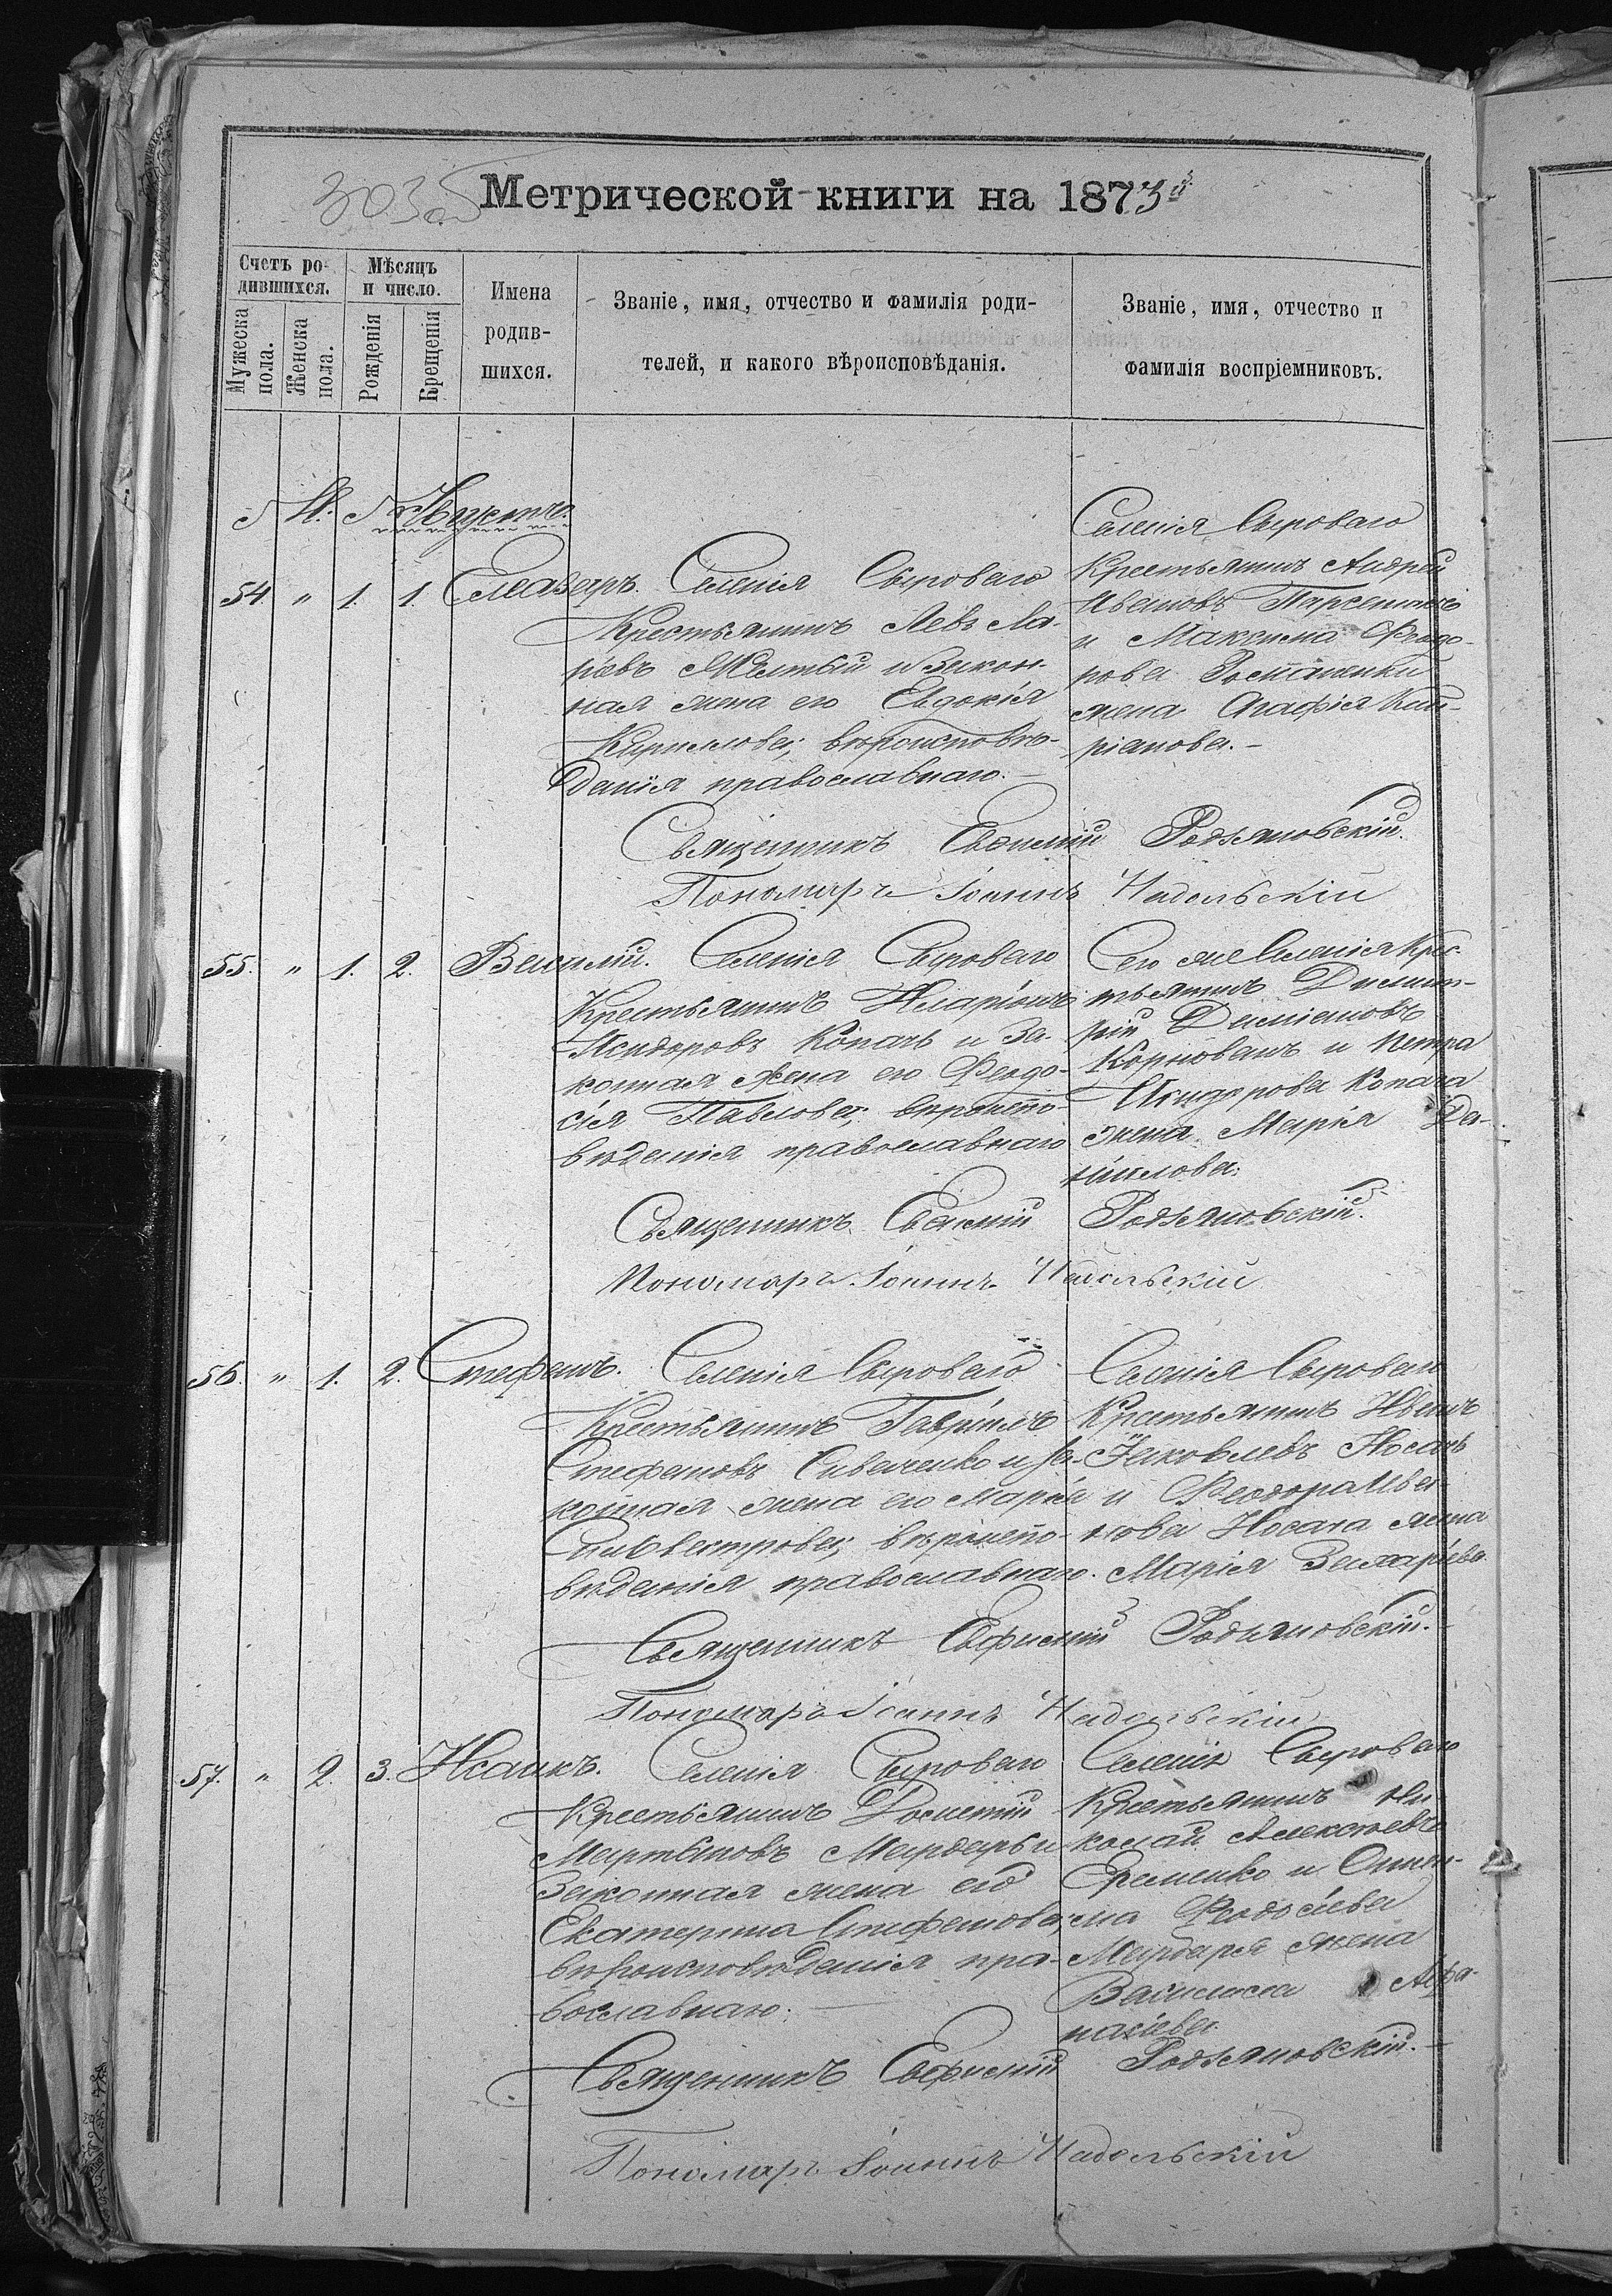 303об
Метрической книги на 1873й
Счетъ ро-
дившихся.
Мужеска
пола.
Женска
пола.
Мѣсяцъ
и число.
Рожденія
Крещенія
Имена
родив-
шихся.
Званіе, имя, отчество и фамилія роди-
телей, и какого вѣроисповѣданія.
Званіе, имя, отчество и
фамилія воспріемниковъ.
М.
Августъ
54. " 1. 1. Елеазаръ.
Селенія Сыроваго
Крестьянинъ Левъ Ла-
ревъ Желтый и закон-
ная жена его Евдокія
Кириллова, вѣроисповѣ-
данія православнаго.
Селенія Сыроваго
Крестьянинъ Андрей
Ивановъ
и Максима Феодо-
рова
жена Агафія Кип-
ріанова.
Священникъ Евфимій Родзяновскій.
Пономарь Іоаннъ Надольскій
55. " 1. 2. Василій.
Селенія Сыроваго
Крестьянинъ Иларіонъ
Исидоровъ Копачъ и за-
конная жена его Феодо-
сія Павлова, вѣроиспо-
вѣданія православнаго
Сего же Селенія Крес-
тьянинъ Димит-
рій Даміановъ
Корнованъ и Петра
Исидорова Копача
жена Марія Да-
ніилова.
Священникъ Евфимій Родзяновскій.
Пономарь Іоаннъ Надольскій
56. " 1. 2. Стефанъ.
Селенія Сыроваго
Крестьянинъ Гавріилъ
Стефановъ Сиваченко и за-
конная жена его Марія
Сильвестрова, вѣроиспо-
вѣданія православнаго.
Селенія Сыроваго
Крестьянинъ Иванъ
Іаковлевъ Носачъ
и Феодора Ива-
нова Носача жена
Марія Захаріева.
Священникъ Евфимій Родзяновскій.
Пономарь Іоаннъ Надольскій
57. " 2. 3. Исаакъ.
Селенія Сыроваго
Крестьянинъ Дометій
Мартыновъ Мардарь и
Законная жена его
Екатерина Стефанова,
вѣроисповѣданія пра-
вославнаго.
Селенія Сыроваго
Крестьянинъ Ни-
колай Алексѣевъ
Еременко и
Феодосіева
Мардаря жена
Василиса Афа-
насіева.
Священникъ Евфимій Родзяновскій.
Пономарь Іоаннъ Надольскій